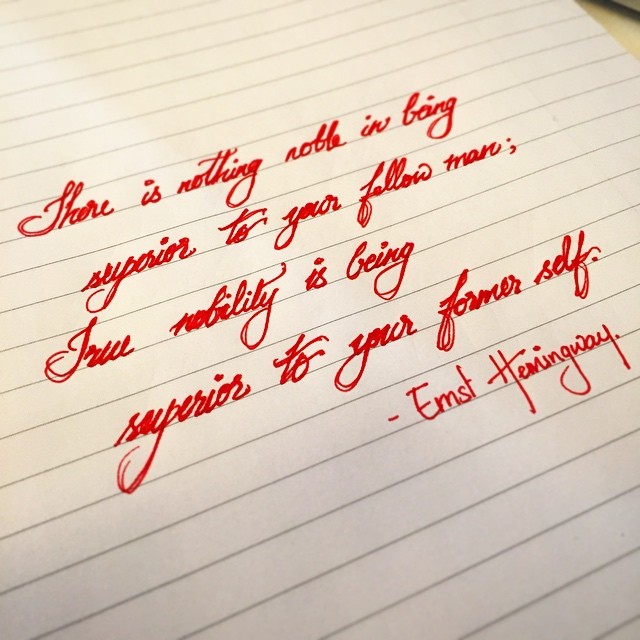 There is nothing noble in being
superior to your fellow man;
True nobility is being
superior to your former self.
- Ernst Hemingway.